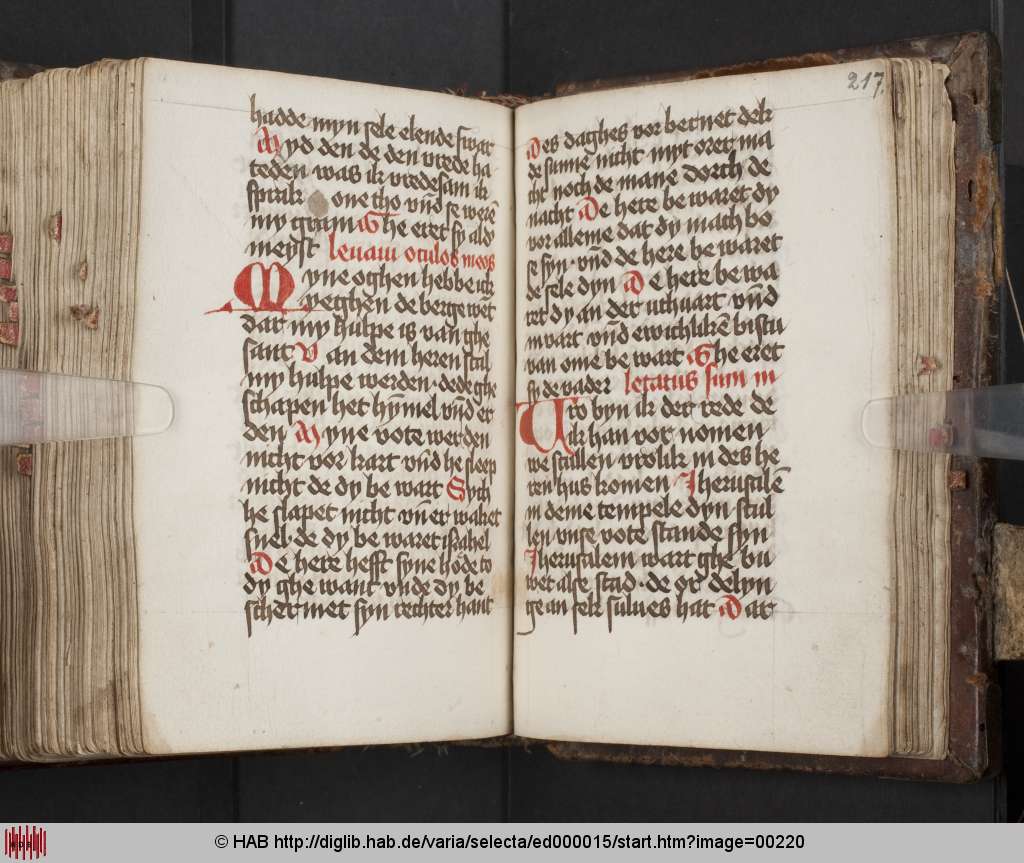 hadde myn sele elende swar
Myd den de den vrede ha
teden was ik vredesam ik
sprak one tho vn̄d se werē
my gram Ghe eret sy aldo
meyst leuaui oculos meos
Myne oghen hebbe ick
vpeghen de berge wēt
dar my hulpe is van ghe
sant Van dem heren scal
my hulpe werden · dede ghe
schapen het hȳmel vn̄d er
den Myne vote werden
nicht vor kart vn̄d he sleep
nicht de dy be wart Sych
he slapet nicht vn̄ er waket
snel · de dy be waret israhel
De here hefft syne hōde to
dy ghe want vnde dy be
schermet syn rechter hant
217
Des daghes vor bernet dek
de sunne nicht myt orer ma
cht noch de mane dorch de
nacht De here be waret dy
vor alleme dat dy mach bo
se syn · vn̄d de here be waret
de sele dyn De here be wa
ret dy an der uthuart vn̄d
in vart vn̄d ewichlikē bistu
van ome be wart Ghe eret
sy de vader letatus sum in
Vro byn ik der rede de
ik han vor nomen
we scullen vrolik in des he
ren hus komen Iherusalē
in deme tempele dyn scul
len vnse vote stande syn
Iherusalem wart ghe bu
wet alse stad · de or delyn
ge an sek sulues hat Dar
© HAB http://diglib.hab.de/varia/selecta/ed000015/start.htm?image=00220